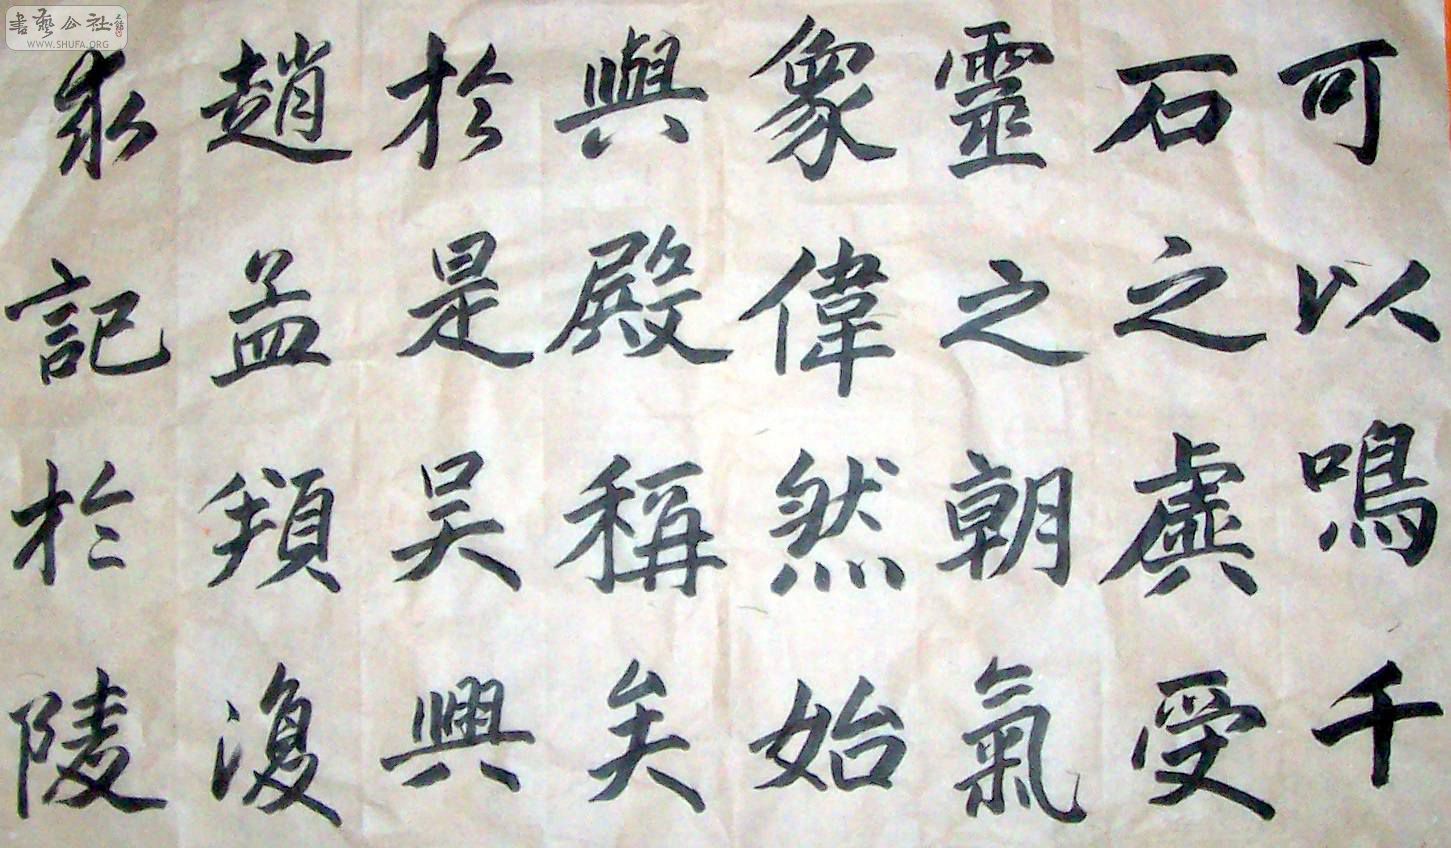 可以鳴千
石之虡受
靈之朝氣
象偉然始
與殿稱矣
於是吳興
趙孟頫復
求記於陵
書藝公社
WWW.SHUFA.ORG